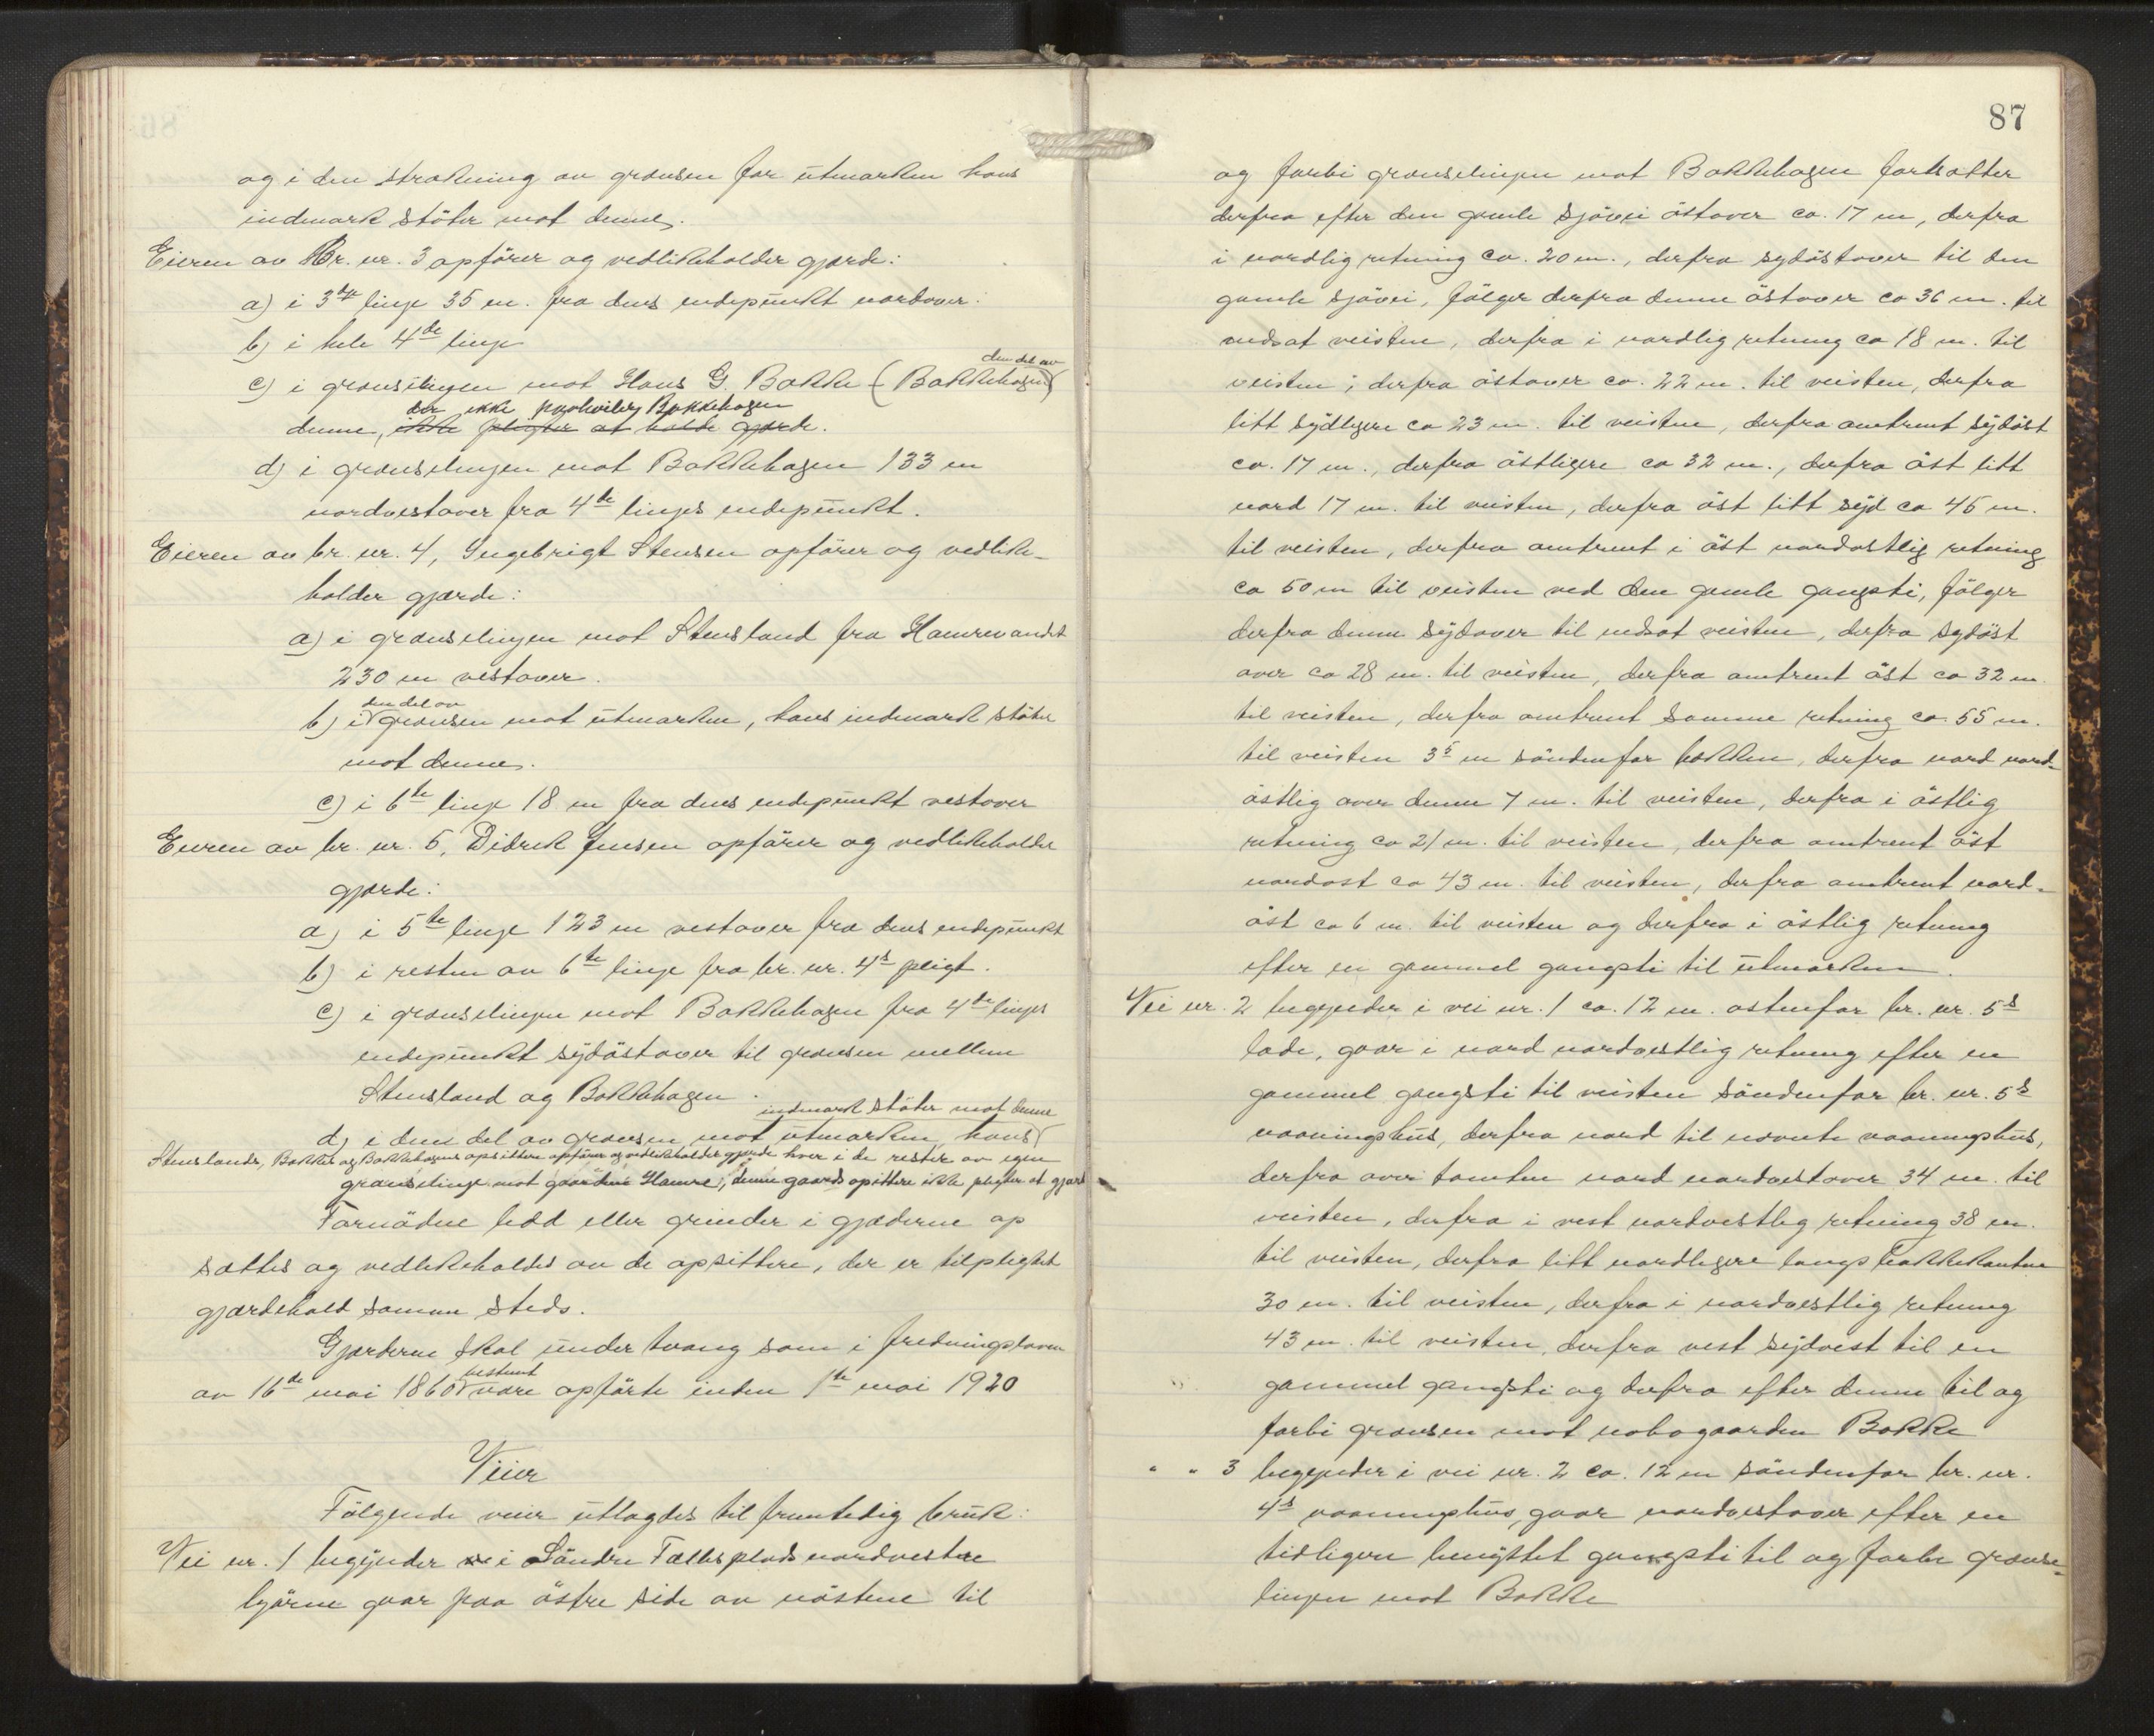 og i den strækning av grænsen for utmarken hans
indmark støter mot denne.
Eieren av Br. nr. 3 opfører og vedlikeholder gjærde:
a) i 3die linje 35 m. fra dens endepunkt nordover.
b) i hele 4de linje
den del av
c) i grænselinjen mot Hans G. Bakke (Bakkehagen)
der ikke paahviler Bakkehagen
denne, ikke pligter at holde gjærde.
d) i grænselinjen mot Bakkehagen 133 m
nordvestover fra 4de linjes endepunkt.
Eieren av br. nr. 4, Ingebrigt Stensen opfører og vedlike-
holder gjærde:
a) i grænselinjen mot Stensland fra Hamrevandet
230 m vestover.
den del av
b) i grænsen mot utmarken, hans indmark støter
mot denne.
c) i 6te linje 18 m fra dens endepunkt vestover
Eieren av br. nr. 5, Didrik Jensen opfører og vedlikeholder
gjærde:
a) i 5te linje 123 m vestover fra dens endepunkt
b) i resten av 6te linje fra br. nr. 4s pligt.
c) i grænselinjen mot Bakkehagen fra 4de linjes
endepunkt sydøstover til grænsen mellem
Stensland og Bakkehagen.
indmark støter mot denne
d) i den del av grænsen mot utmarken, hans
Stenslands, Bakkes og Bakkehagens opsittere opfører og vedlikeholder gjærde hver i de rester av egen
grænselinje mot gaarden Hamre, denne gaards opsittere ikke pligter at gjærde
Fornødne ledd eller grinder i gjæderne op
sættes og vedlikeholdes av de opsittere, der er tilpligtet
gjærdehold samme steds.
Gjærderne skal under tvang som i fredningsloven
bestemt
av 16de mai 1860 være opførte inden 1te mai 1920
Veier
Følgende veier utlagdes til fremtidig bruk:
Vei nr. 1 begynder i Søndre Fællesplads nordvestre
hjørne gaar paa østre side av nøstene til
87
og forbi grænselinjen mot Bakkehagen fortsætter
derfra efter den gamle sjøvei østover ca. 17 m, derfra
i nordlig retning ca. 20 m., derfra sydøstover til den
gamle sjøvei, følger derfra denne østover ca 36 m. til
nedsat veisten, derfra i nordlig retning ca 18 m. til
veisten; derfra østover ca. 22 m. til veisten, derfra
litt sydligere ca 23 m. til veisten, derfra omtrent sydøst
ca. 17 m., derfra østligere ca 32 m., derfra øst litt
nord 17 m. til veisten, derfra øst litt syd ca 45 m.
til veisten, derfra omtrent i øst nordøstlig retning
ca 50 m til veisten ved den gamle gangsti, følger
derfra denne sydover til nedsat veisten, derfra sydøst
over ca 28 m. til veisten, derfra omtrent øst ca 32 m.
til veisten, derfra omtrent samme retning ca. 55 m.
til veisten 3⁵ m søndenfor bækken, derfra nord nord-
østlig over denne 7 m. til veisten, derfra i østlig
retning ca 21 m. til veisten, derfra omtrent øst
nordøst ca 43 m. til veisten, derfra omtrent nord-
øst ca 6 m. til veisten og derfra i østlig retning
efter en gammel gangsti til utmarken.
Vei nr. 2 begynder i vei nr. 1 ca. 12 m. østenfor br. nr. 5s
lade, gaar i nord nordvestlig retning efter en
gammel gangsti til veisten søndenfor br. nr. 5s
vaaningshus, derfra nord til nævnte vaaningshus,
derfra over tomten nord nordvestover 34 m. til
veisten, derfra i vest nordvestlig retning 38 m.
til veisten, derfra litt nordligere langs bakkekanten
30 m. til veisten, derfra i nordvestlig retning
43 m. til veisten, derfra vest sydvest til en
gammel gangsti og derfra efter denne til og
forbi grænsen mot nabogaarden Bakke
" " 3 begynder i vei nr. 2 ca. 12 m søndenfor br. nr.
4s vaaningshus, gaar nordvestover efter en
tidligere benyttet gangsti til og forbi grænse-
linjen mot Bakke